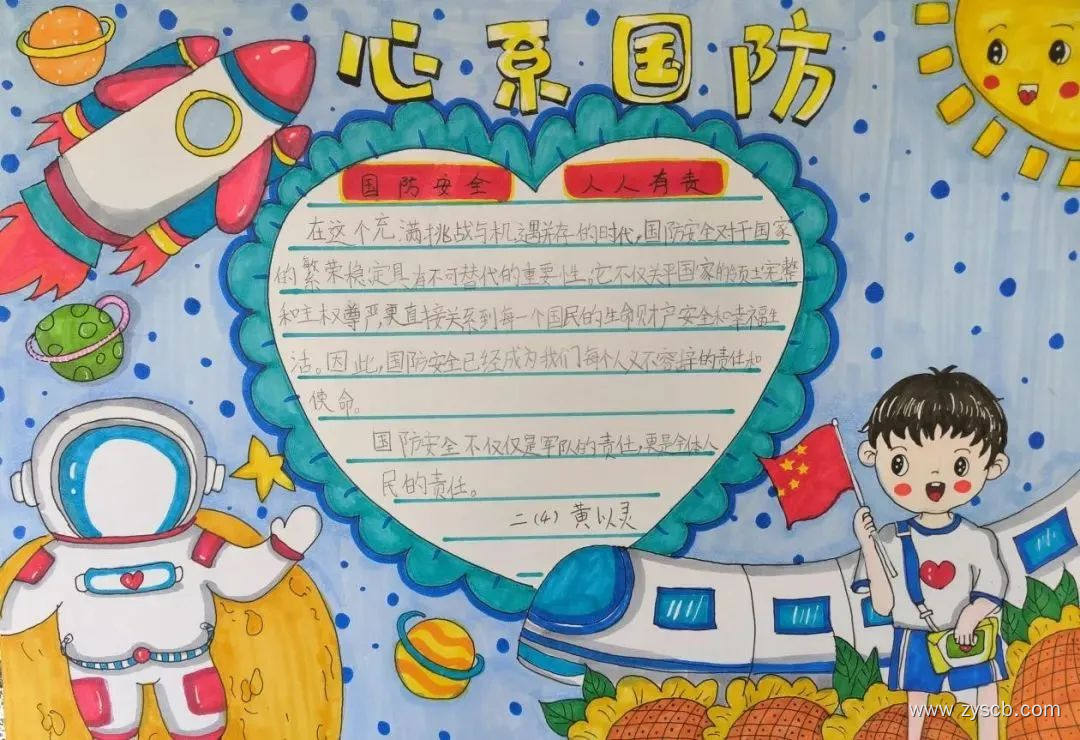 心系国防
国防安全 人人有责
在这个充满挑战与机遇并存的时代,国防安全对于国家
的繁荣稳定具有不可替代的重要性。它不仅关乎国家的领土完整
和主权尊严,更直接关系到每一个国民的生命财产安全和幸福生
活。因此,国防安全已经成为我们每个人义不容辞的责任和
使命。
国防安全不仅仅是军队的责任,更是全体人
民的责任。
二(4) 黄以灵
www.zyscb.com